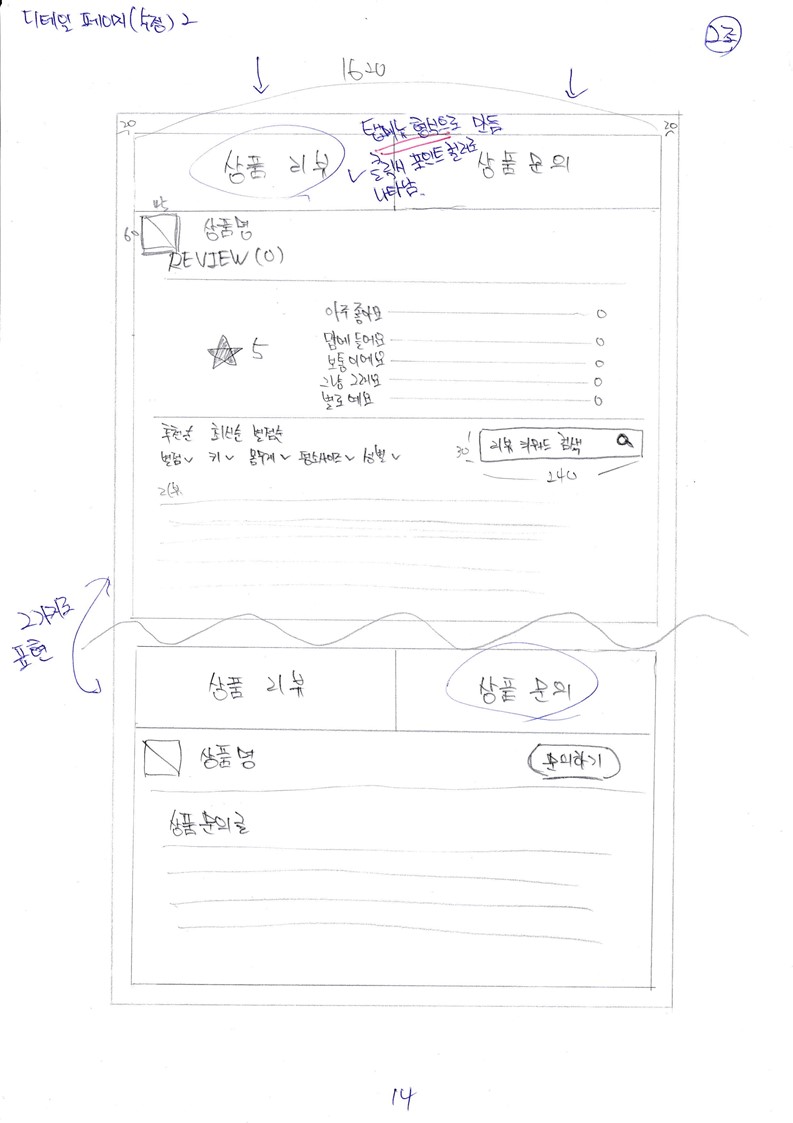 디테일 페이지(수정) 2
2조
1620
20
20
탭메뉴 형식으로 만듬
상품 리뷰
✓ 클릭시 포인트 컬러로
나타남.
상품 문의
60
상품명
REVIEW(0)
★ 5
아주 좋아요 0
맘에 들어요 0
보통이에요 0
그냥 그래요 0
별로예요 0
추천순 최신순 별점순
별점 키 몸무게 평소사이즈 성별
30
리뷰 키워드 검색
240
리뷰
2가지로
표현
상품 리뷰
상품 문의
상품명
문의하기
상품 문의 글
14